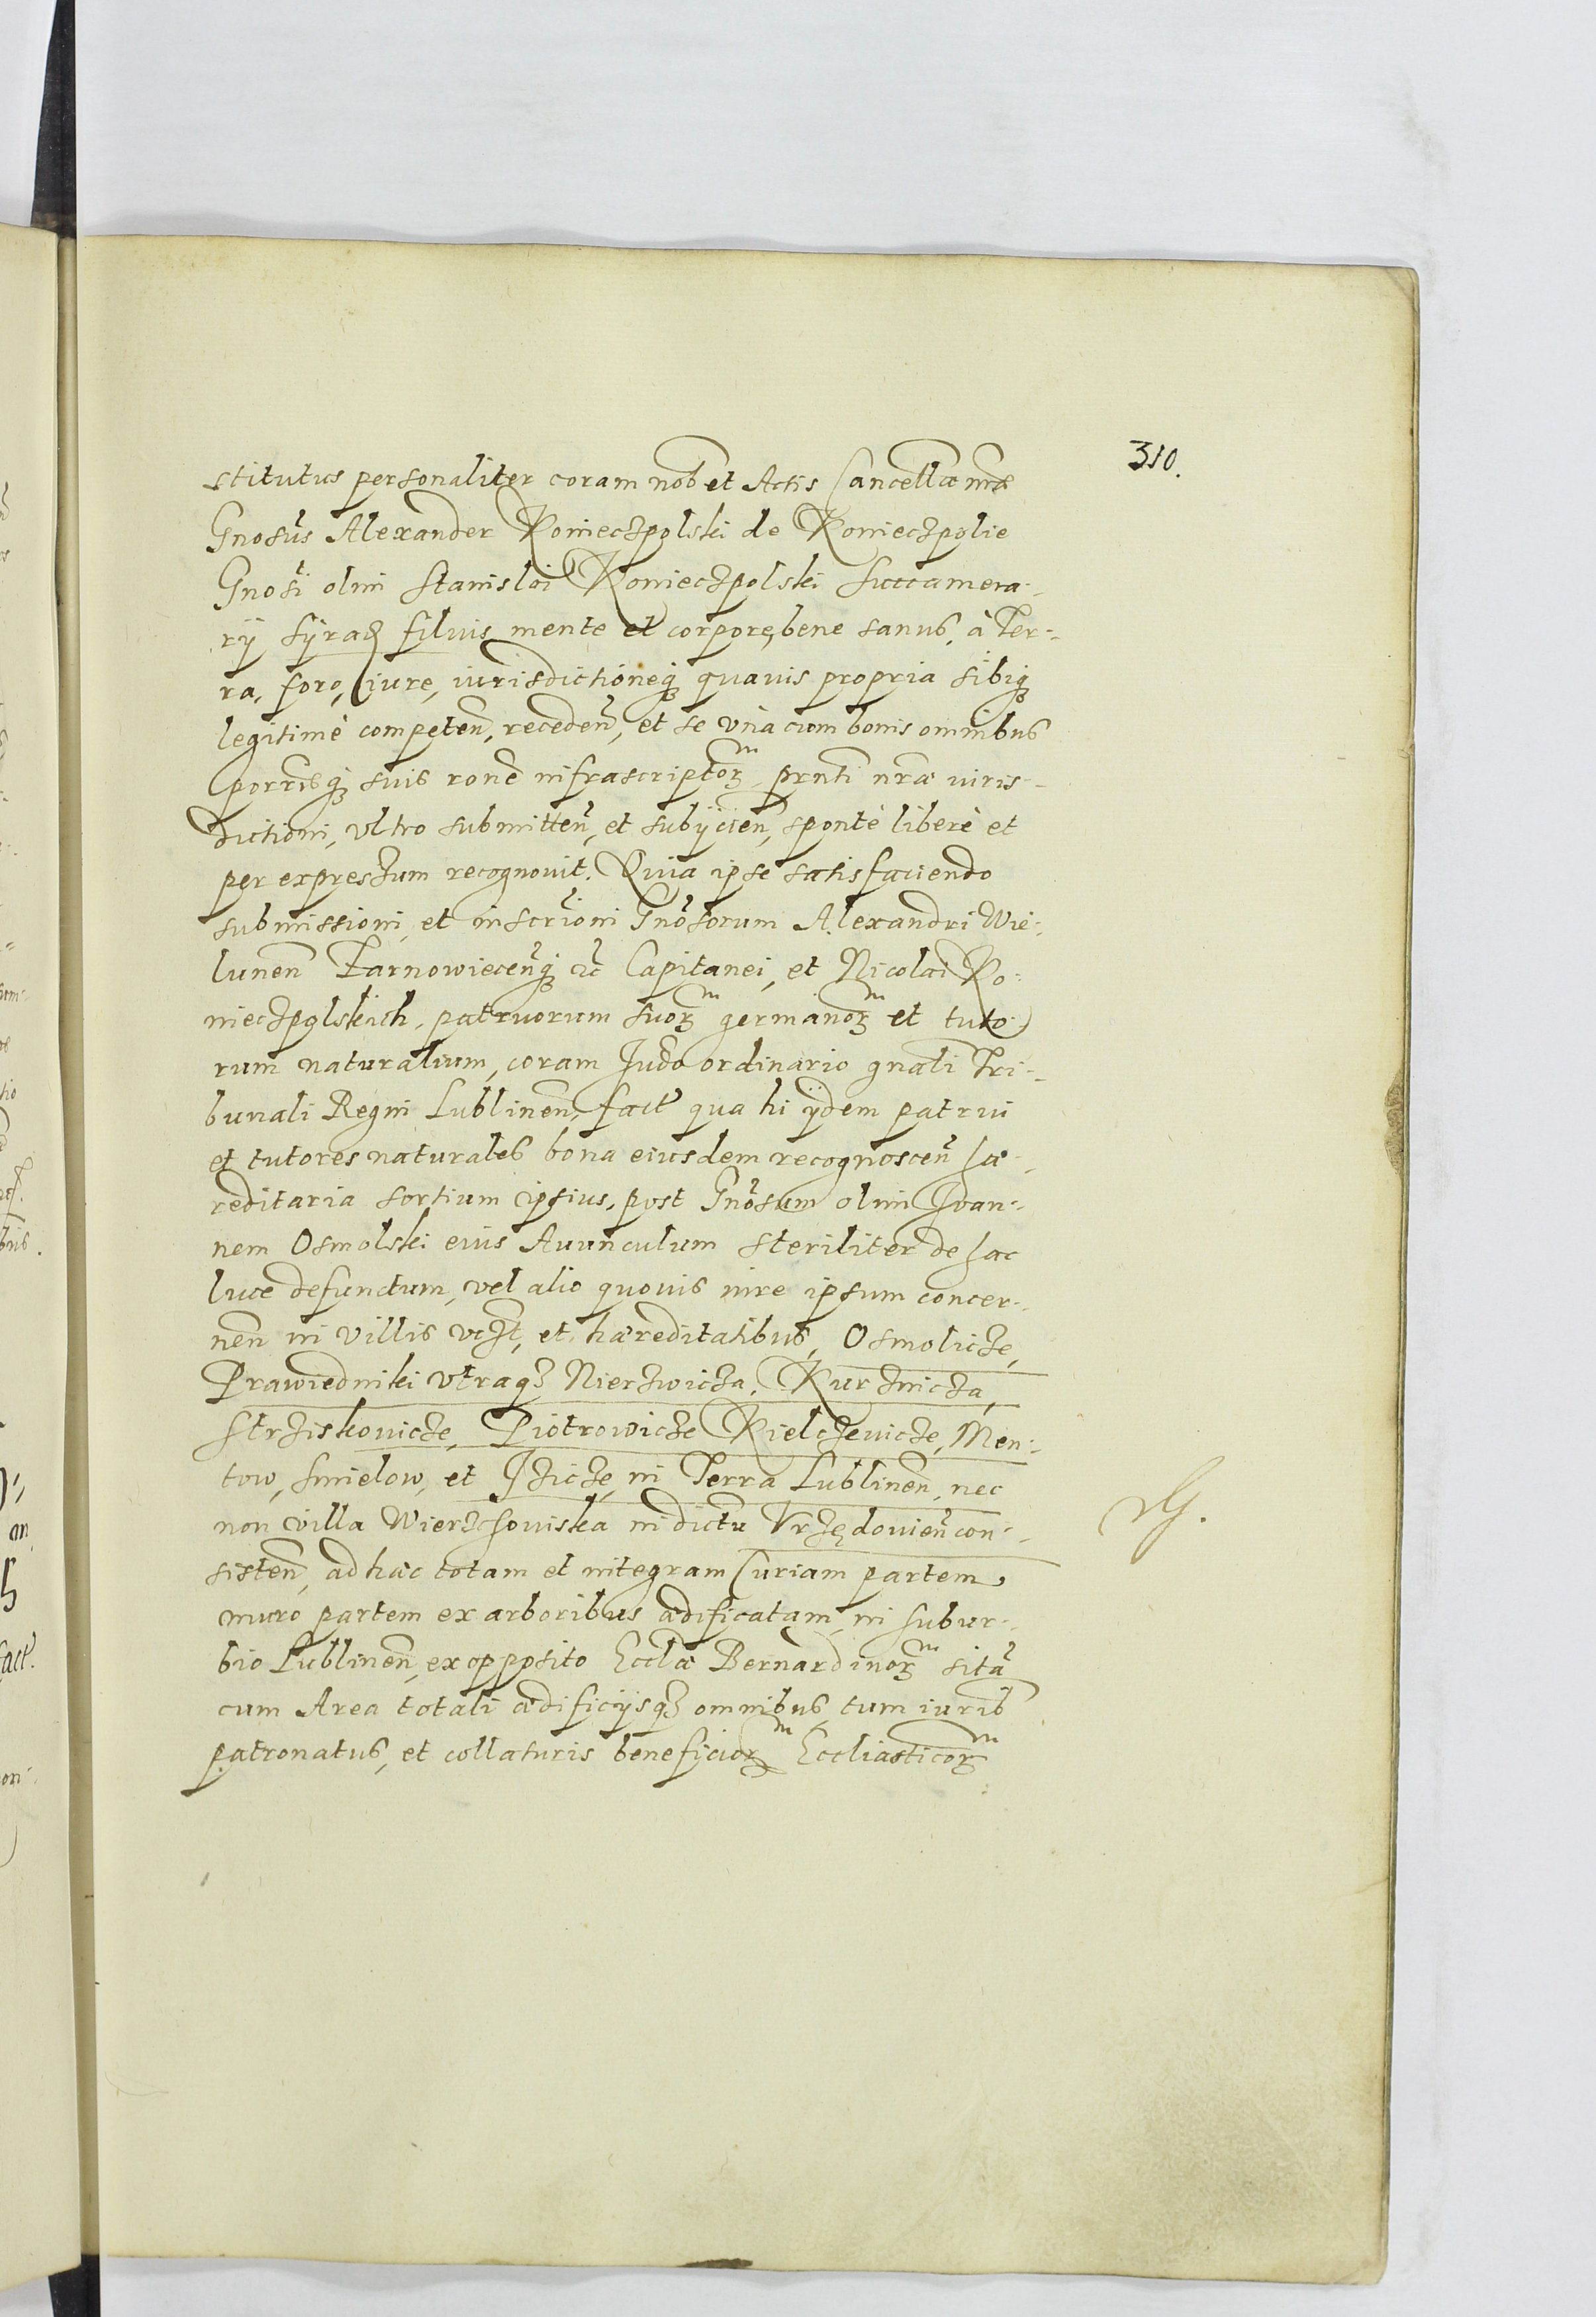 310.
stitutus personaliter coram nob̃ et Actis Cancellæ nr̃æ
Gnosus Alexander Konieczpolski de Konieczpolie
Gnosi olim Stanislai Konieczpolski Succamera-
rij Syraȝ filius mente et corpore, bene sanus, à Ter-
ra, foro, iure, iurisdictioneqȝ quauis propria sibiqȝ
legitimè competeñ, recedeñ, et se vnà cum bonis omnibus
suis ron̄e infrascriptorꝫ^m prn̄ti nr̃æ iuris-
dictioni, vltro submitteñ, et subijcieñ, spontè liberè et
per expressum recognouit. Quia ipse satisfaciendo
submissioni, et inscri̇oni Gnosorum Alexandri Wie-
luneñ Tarnowieceñqȝ etc̃ Capitanei, et Nicolai Ko-
nieczpolskich, patruorum suorꝫ^m germanorꝫ^m et tuto-
rum naturalium, coram Jud̃o ordinario gnali Tri-
bunali Regni Lublineñ, fact̃ qua hi ijdem patrui
et tutores naturales bona eiusdem recognosceñ hæ-
reditaria sortium ipsius, post Gnosum olim Joan-
nem Osmolski eius Auunculum steriliter de hac
luce defunctum, vel alio quouis iure ipsum concer-
neñ in villis et hæreditatibus, Osmolicze,
Prawiedniki vtraqȝ Nierzwicza, Kurznicza,
Strziskouicze, Piotrowicze Kielczeuicze, Men-
tow, Smielow, et Jzicze, in Terra Lublineñ, nec
non villa Wierzchouiska in dictu Vrzędouieñ con-
sisteñ, ad hæc totam et integram Curiam partem
muro partem ex arboribus ædificatam, in subur-
bio Lublineñ, ex opposito Eccl̃æ Bernardinorꝫ^m sitã
cum Area totali ædificijsqȝ omnibus, tum iurib̃
patronatus, et collaturis beneficiorꝫ^m Eccliasticorꝫ^m